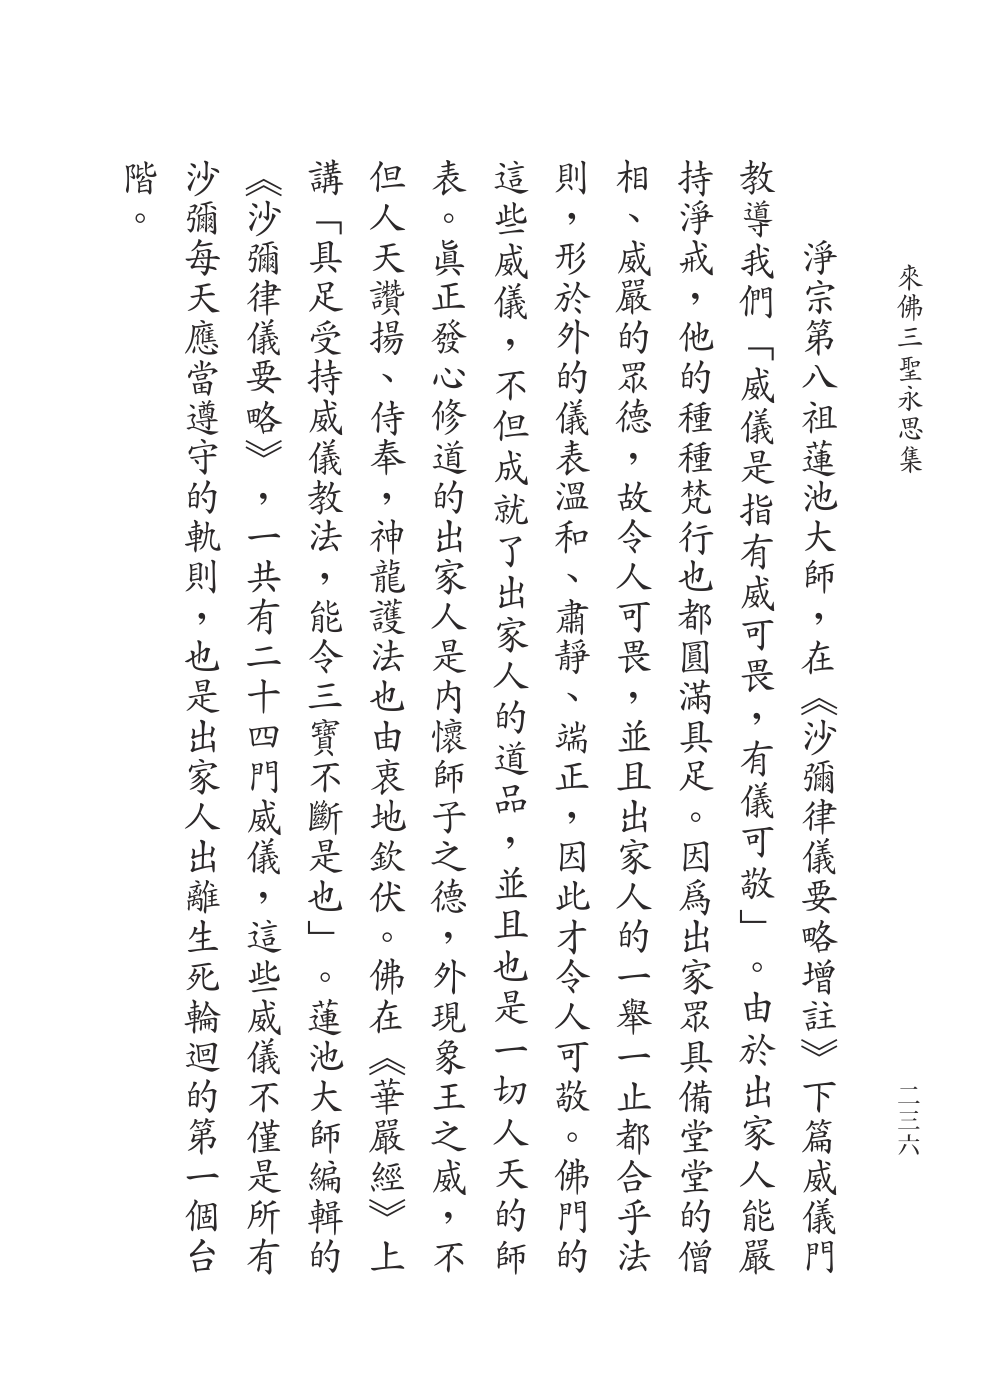 來佛三聖永思集
二三六
淨宗第八祖蓮池大師，在《沙彌律儀要略增註》下篇威儀門
教導我們「威儀是指有威可畏，有儀可敬」。由於出家人能嚴
持淨戒，他的種種梵行也都圓滿具足。因爲出家眾具備堂堂的僧
相、威嚴的眾德，故令人可畏，並且出家人的一舉一止都合乎法
則，形於外的儀表溫和、肅靜、端正，因此才令人可敬。佛門的
這些威儀，不但成就了出家人的道品，並且也是一切人天的師
表。眞正發心修道的出家人是内懷師子之德，外現象王之威，不
但人天讚揚、侍奉，神龍護法也由衷地欽伏。佛在《華嚴經》上
講「具足受持威儀教法，能令三寶不斷是也」。蓮池大師編輯的
《沙彌律儀要略》，一共有二十四門威儀，這些威儀不僅是所有
沙彌每天應當遵守的軌則，也是出家人出離生死輪迴的第一個台
階。